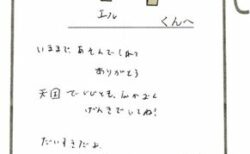 エル くんへ
いままで あそんでくれて
ありがとう
天国
げんきでいてね!
だいすきだよ